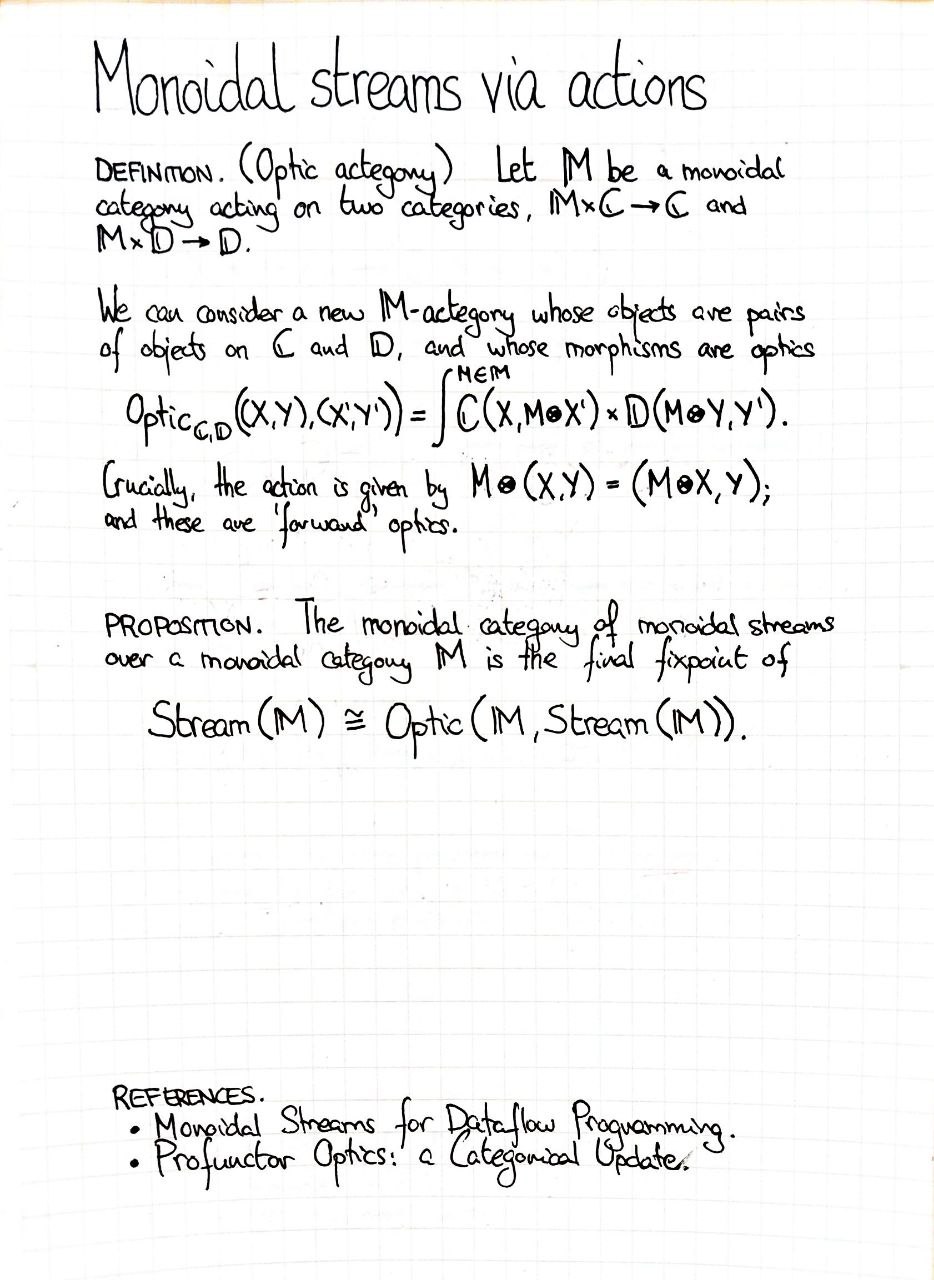 Monoidal streams via actions
DEFINITION. (Optic actegory) Let 𝕄 be a monoidal
category acting on two categories, 𝕄×ℂ→ℂ and
𝕄×𝔻→𝔻.
We can consider a new 𝕄-actegory whose objects are pairs
of objects on ℂ and 𝔻, and whose morphisms are optics
Optic_{ℂ,𝔻}((X,Y),(X',Y')) = ∫^{M∈𝕄} ℂ(X,M⊗X') × 𝔻(M⊗Y,Y').
Crucially, the action is given by M⊗(X,Y) = (M⊗X,Y);
and these are 'forward' optics.
PROPOSITION. The monoidal category of monoidal streams
over a monoidal category 𝕄 is the final fixpoint of
Stream(𝕄) ≅ Optic(𝕄,Stream(𝕄)).
REFERENCES.
• Monoidal Streams for Dataflow Programming.
• Profunctor Optics: a Categorical Update.